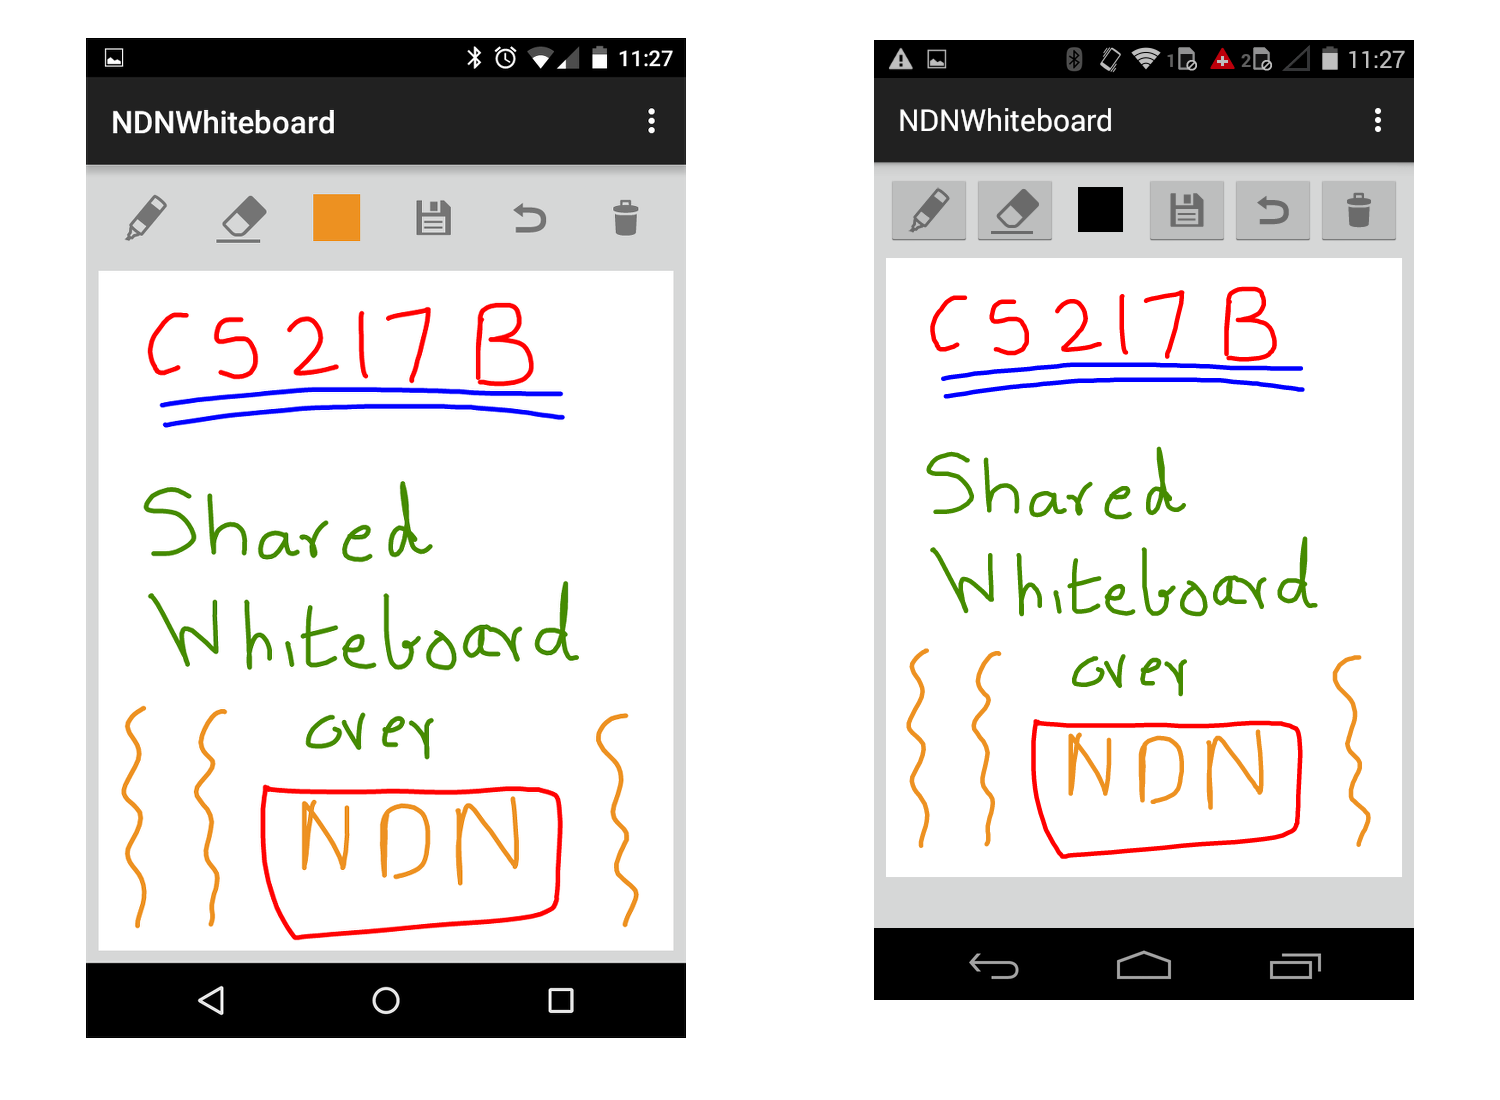 11:27
NDNWhiteboard
CS217B
Shared
Whiteboard
over
NDN
1 2 11:27
NDNWhiteboard
CS217B
Shared
Whiteboard
over
NDN